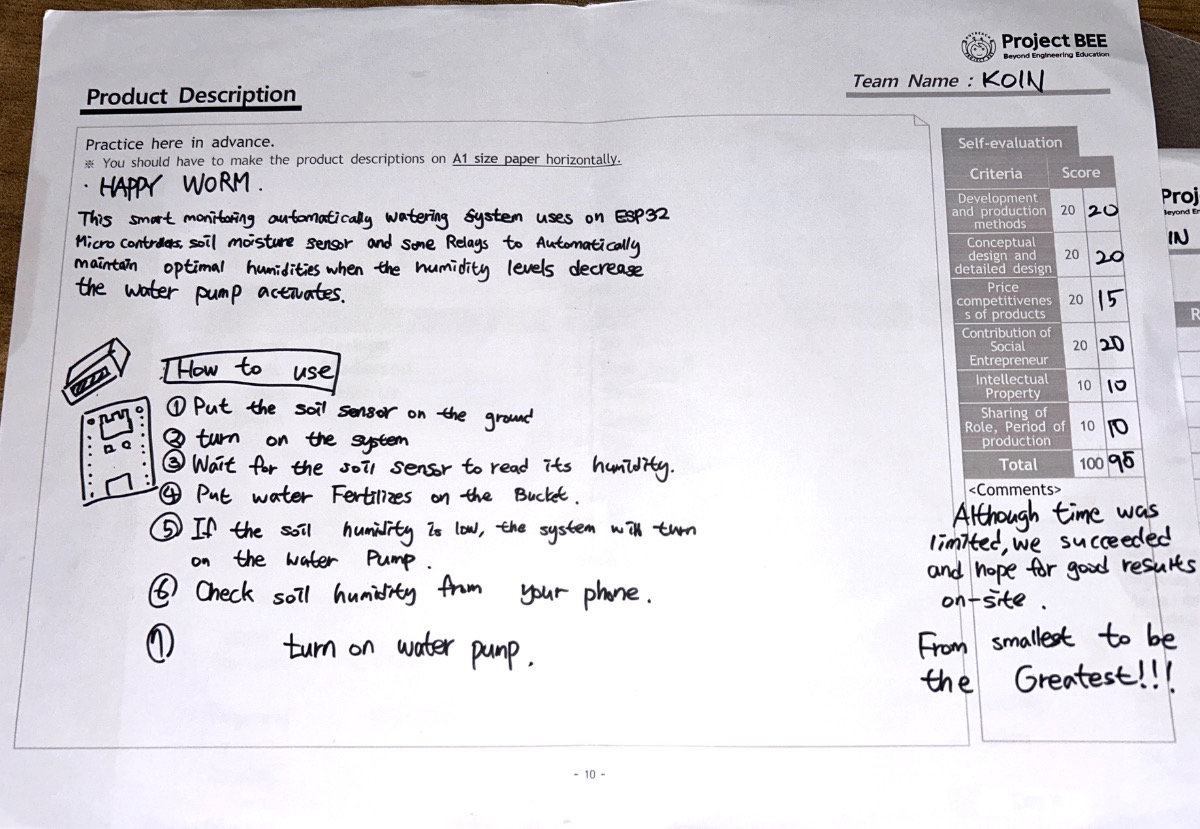 Project BEE
Beyond Engineering Education
Team Name : KOIN
Product Description
Practice here in advance.
※ You should have to make the product descriptions on A1 size paper horizontally.
· HAPPY WORM.
This smart monitoring automatically watering system uses on ESP32
Micro controllers, soil moisture sensor and some Relays to Automatically
maintain optimal humidities when the humidity levels decrease
the water pump activates.
How to use
① Put the soil sensor on the ground
② turn on the system
③ Wait for the soil sensr to read its humidity.
④ Put water Fertilizes on the Bucket.
⑤ If the soil humidity is low, the system will turn
on the water Pump.
⑥ Check soil humidity from your phone.
⑦ turn on water pump.
Self-evaluation
Criteria Score
Development
and production
methods 20 20
Conceptual
design and
detailed design 20 20
Price
competitivenes
s of products 20 15
Contribution of
Social
Entrepreneur 20 20
Intellectual
Property 10 10
Sharing of
Role, Period of
production 10 10
Total 100 95
<Comments>
Although time was
limited, we succeeded
and hope for good results
on-site.
From smallest to be
the Greatest!!!
- 10 -
Proj
IN
R